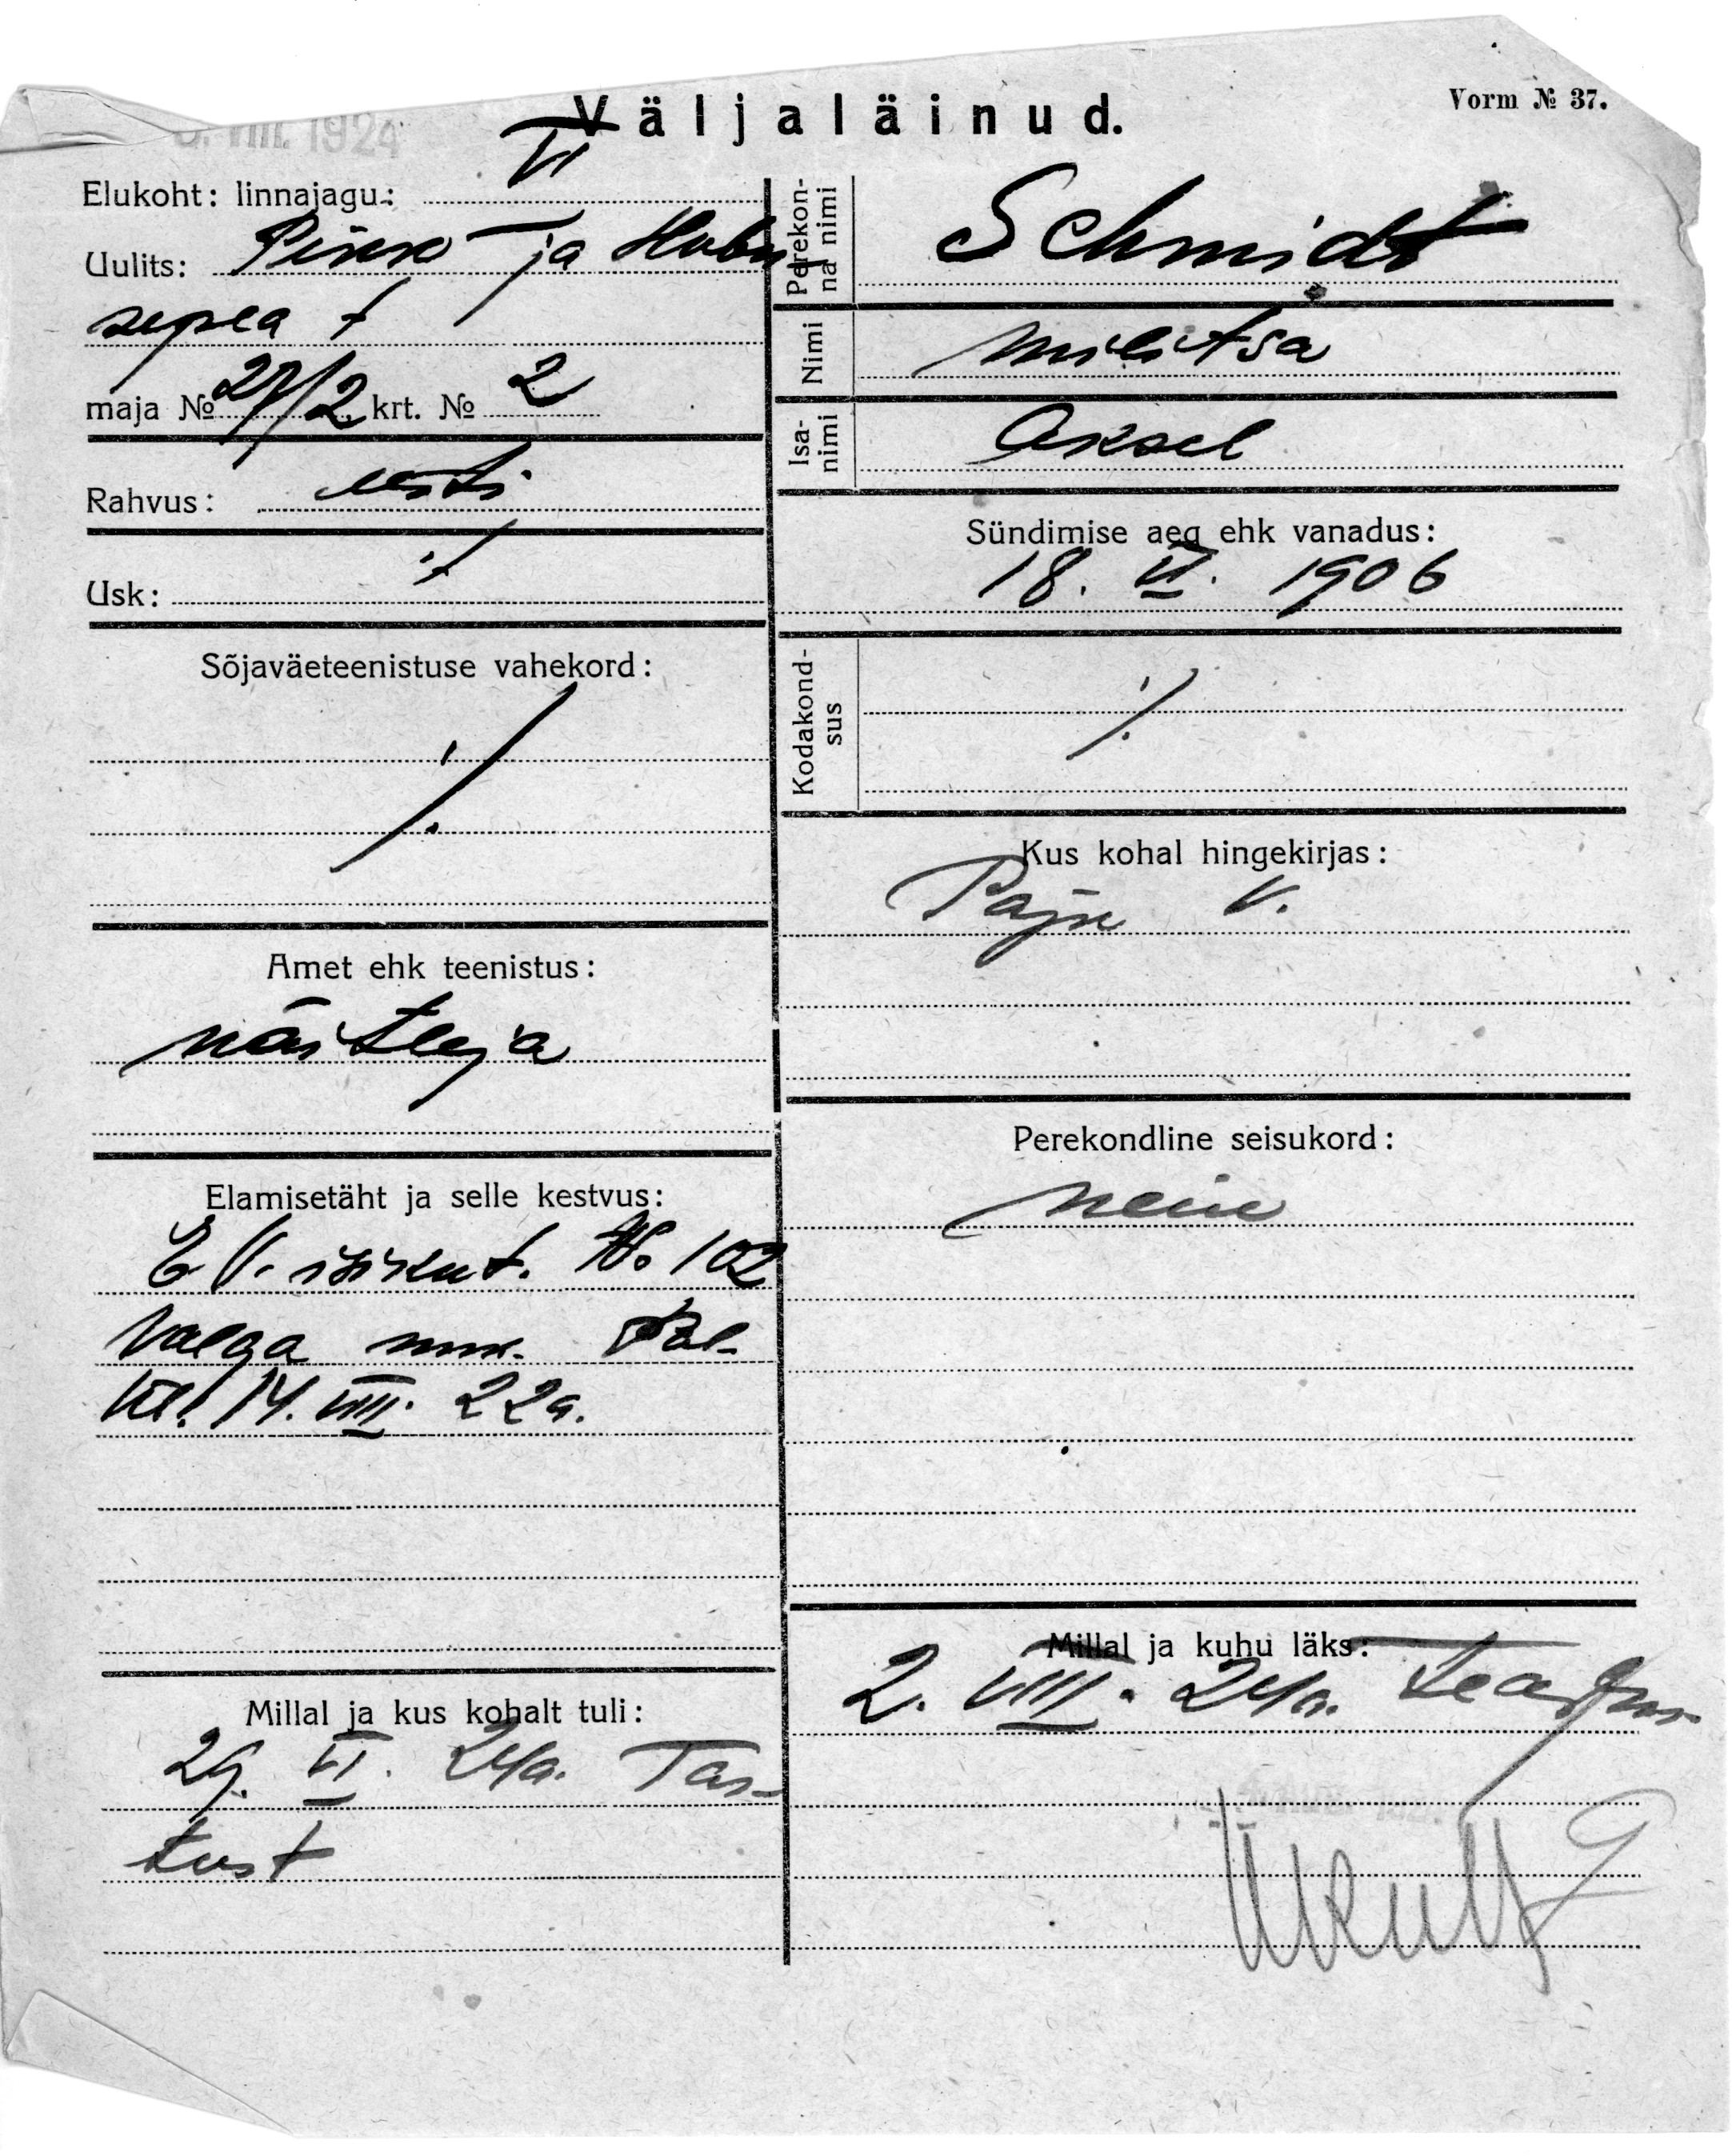 Vorm № 37.
VIII. 1924
Väljaläinud.
Elukoht: linnajagu: VI
Uulits: ja
maja № 27/2 krt. № 2
Rahvus: eesti
Usk: ./.
Sõjaväeteenistuse vahekord:
./.
Amet ehk teenistus:
näitleja
Elamisetäht ja selle kestvus:
E.V. isikut. No 102
Valga
14. VIII. 22a.
Millal ja kus kohalt tuli:
29. VI. 24a. Tar-
tust
Perekon-
na nimi
Schmidt
Nimi
Militsa
Isa-
nimi
Aksel
Sündimise aeg ehk vanadus:
18. VI. 1906
Kodakond-
sus
./.
Kus kohal hingekirjas:
Paju V.
Perekondline seisukord:
neiu
Millal ja kuhu läks:
2. VIII. 24a.